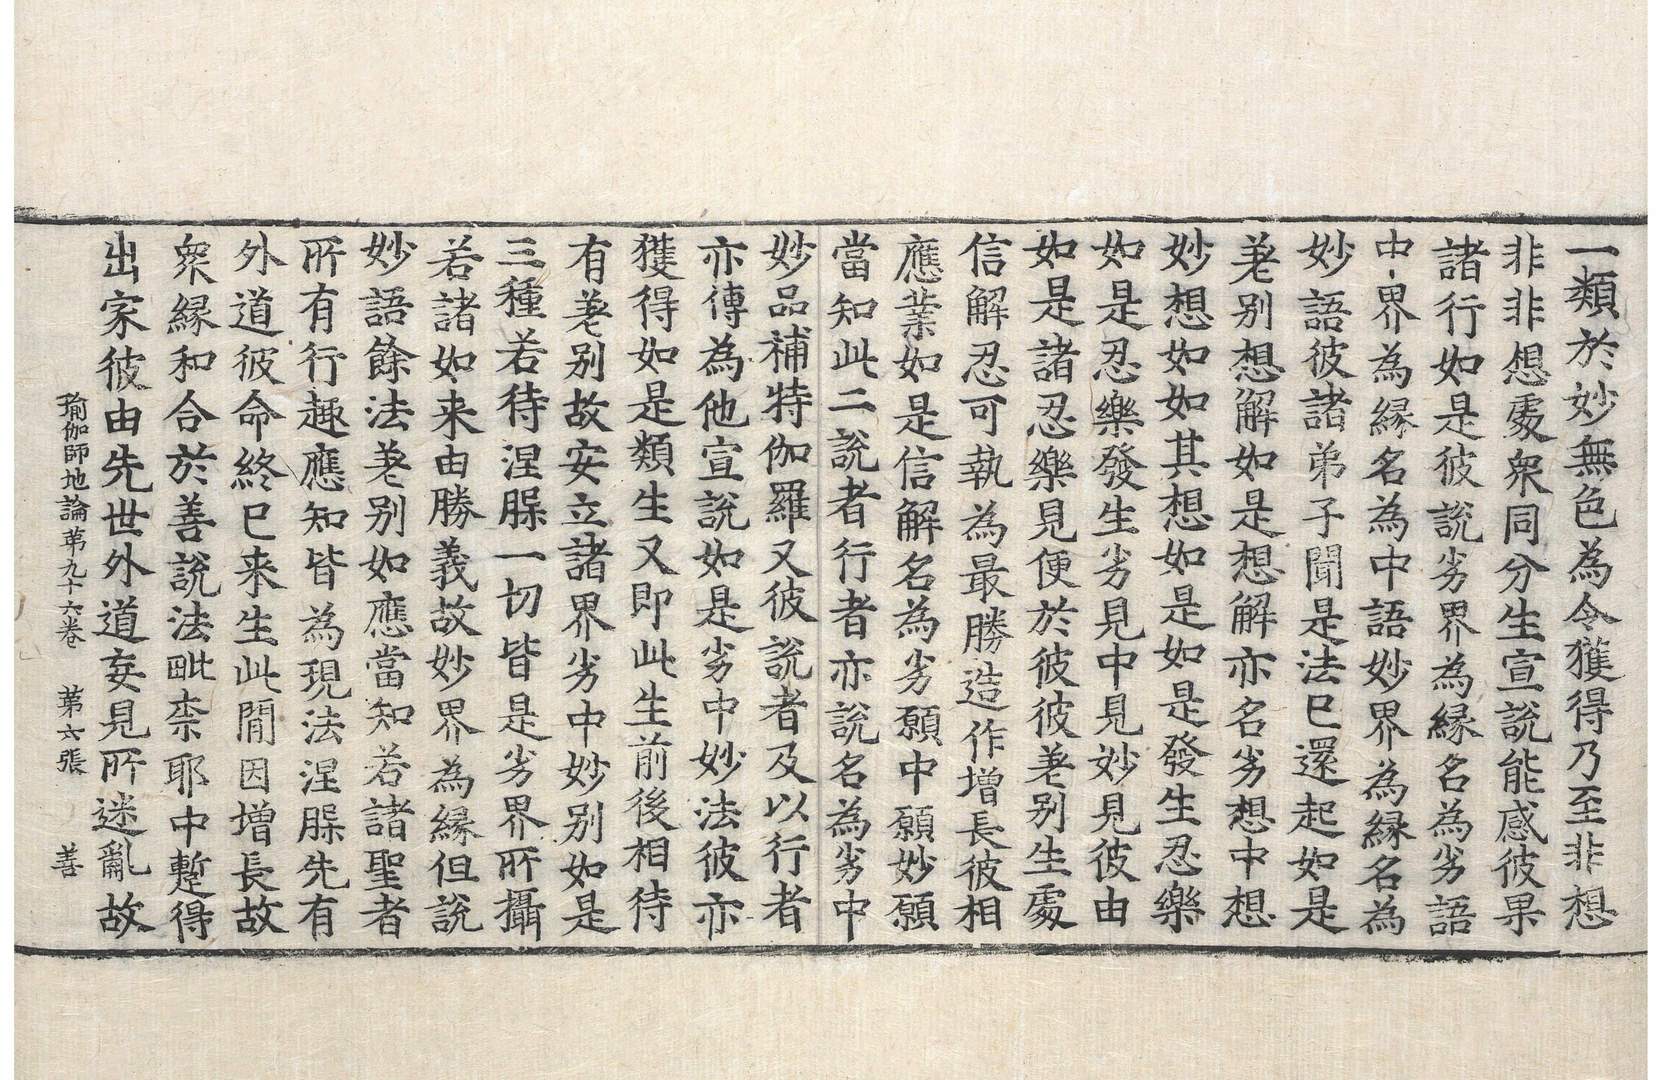 一類於妙無色為令獲得乃至非想
非非想處衆同分生宣說能感彼果
諸行如是彼說劣界為縁名為劣語
中界為縁名為中語妙界為縁名為
妙語彼諸弟子聞是法已還起如是
差别想解如是想解亦名劣想中想
妙想如如其想如是如是發生忍樂
如是忍樂發生劣見中見妙見彼由
如是諸忍樂見便於彼彼差别生處
信解忍可執為最勝造作增長彼相
應業如是信解名為劣願中願妙願
當知此二說者行者亦說名為劣中
妙品補特伽羅又彼說者及以行者
亦傳為他宣說如是劣中妙法彼亦
獲得如是類生又即此生前後相待
有差别故安立諸界劣中妙别如是
三種若待涅槃一切皆是劣界所攝
若諸如来由勝義故妙界為縁但說
妙語餘法差别如應當知若諸聖者
所有行趣應知皆為現法涅槃先有
外道彼命終已来生此間因增長故
衆縁和合於善說法毗柰耶中蹔得
出家彼由先世外道妄見所迷亂故
瑜伽師地論第九十六卷 第六張 善